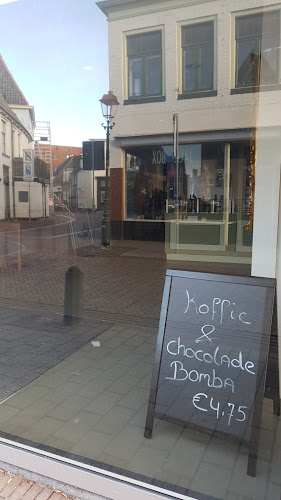 Koffie
&
chocolade
Bomba
€4,75